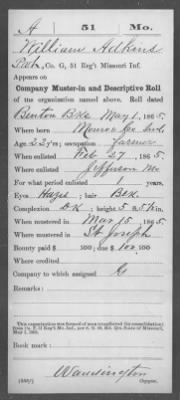 A 51 Mo.
William Adkins
Pvt., Co. G, 51 Reg't Missouri Inf.
Appears on
Company Muster-in and Descriptive Roll
of the organization named above. Roll dated
Benton Bks May 1, 1865.
Where born Monroe Co. Ind.
Age 22 y'rs; occupation Farmer
When enlisted Feb 27, 1865.
Where enlisted Jefferson Mo
For what period enlisted 1 years.
Eyes Hazel; hair Blk.
Complexion Dk; height 5 ft. 5½ in.
When mustered in Mar 15, 1865.
Where mustered in St. Joseph
Bounty paid $ 100; due $ 100 100
Where credited
Company to which assigned G
Remarks:
This organization was formed of men transferred (in consolidation)
May 1, 1865.
Book mark:
Copyist.